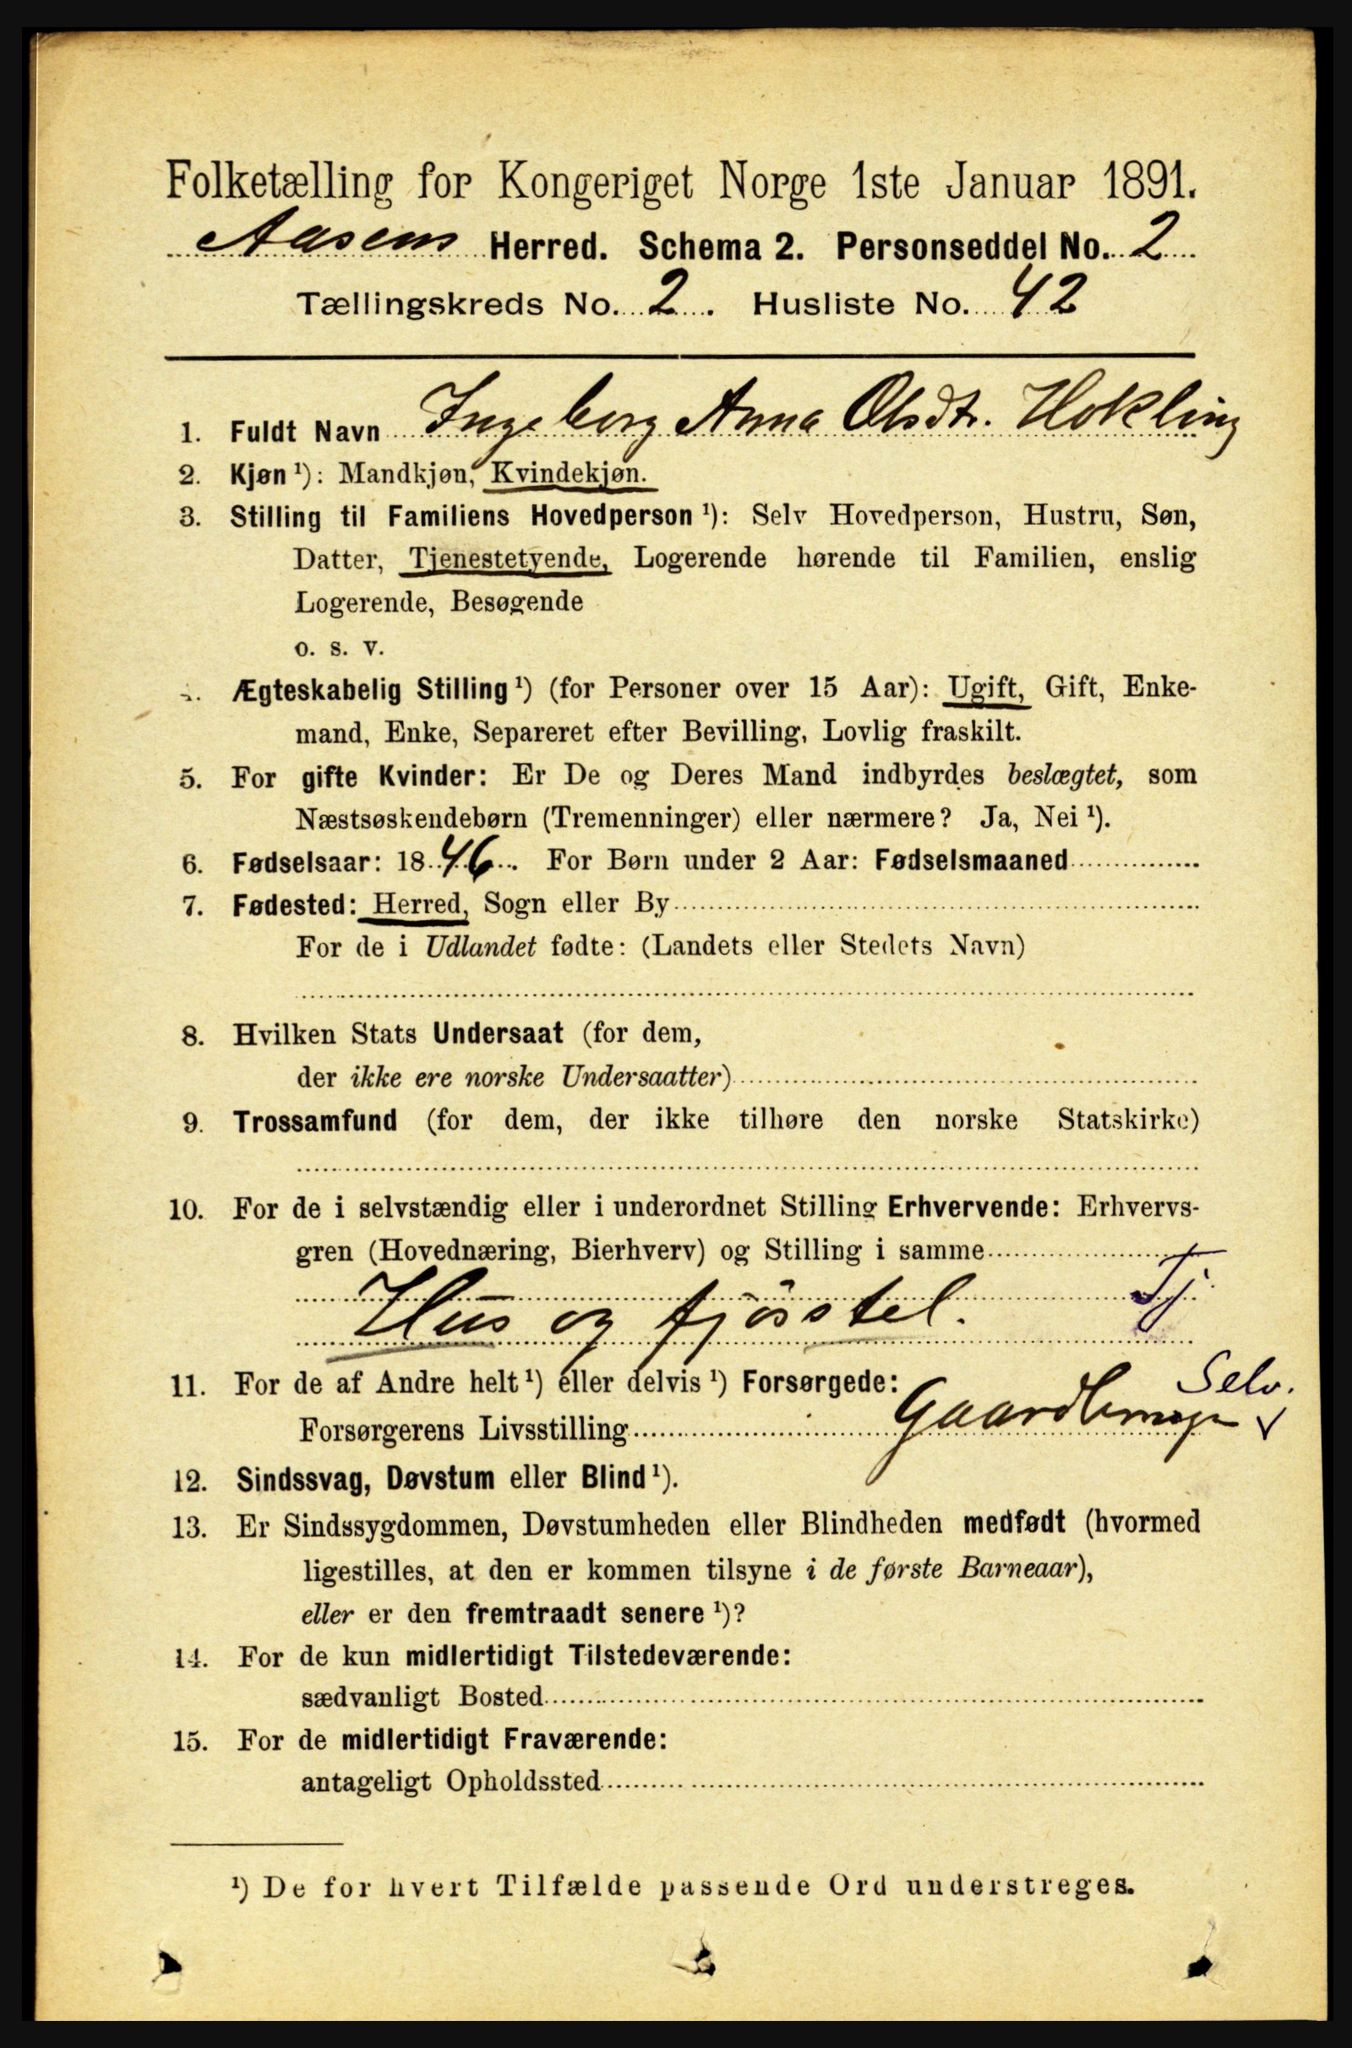 Folketælling for Kongeriget Norge 1ste Januar 1891.
Aasens Herred. Schema 2. Personseddel No. 2
Tællingskreds No. 2. Husliste No. 42
1. Fuldt Navn Ingeborg Anna Olsdtr. Hokling
2. Kjøn ¹): Mandkjøn, Kvindekjøn.
3. Stilling til Familiens Hovedperson ¹): Selv Hovedperson, Hustru, Søn,
Datter, Tjenestetyende, Logerende hørende til Familien, enslig
Logerende, Besøgende
o. s. v.
4. Ægteskabelig Stilling ¹) (for Personer over 15 Aar): Ugift, Gift, Enke-
mand, Enke, Separeret efter Bevilling, Lovlig fraskilt.
5. For gifte Kvinder: Er De og Deres Mand indbyrdes beslægtet, som
Næstsøskendebørn (Tremenninger) eller nærmere? Ja, Nei ¹).
6. Fødselsaar: 1846. For Børn under 2 Aar: Fødselsmaaned
7. Fødested: Herred, Sogn eller By
For de i Udlandet fødte: (Landets eller Stedets Navn)
8. Hvilken Stats Undersaat (for dem,
der ikke ere norske Undersaatter)
9. Trossamfund (for dem, der ikke tilhøre den norske Statskirke)
10. For de i selvstændig eller i underordnet Stilling Erhvervende: Erhvervs-
gren (Hovednæring, Bierhverv) og Stilling i samme
Hus og fjösstel. Tj
11. For de af Andre helt ¹) eller delvis ¹) Forsørgede: Selv.
Forsørgerens Livsstilling Gaardbruger
12. Sindssvag, Døvstum eller Blind ¹).
13. Er Sindssygdommen, Døvstumheden eller Blindheden medfødt (hvormed
ligestilles, at den er kommen tilsyne i de første Barneaar),
eller er den fremtraadt senere ¹)?
14. For de kun midlertidigt Tilstedeværende:
sædvanligt Bosted
15. For de midlertidigt Fraværende:
antageligt Opholdssted
¹) De for hvert Tilfælde passende Ord understreges.